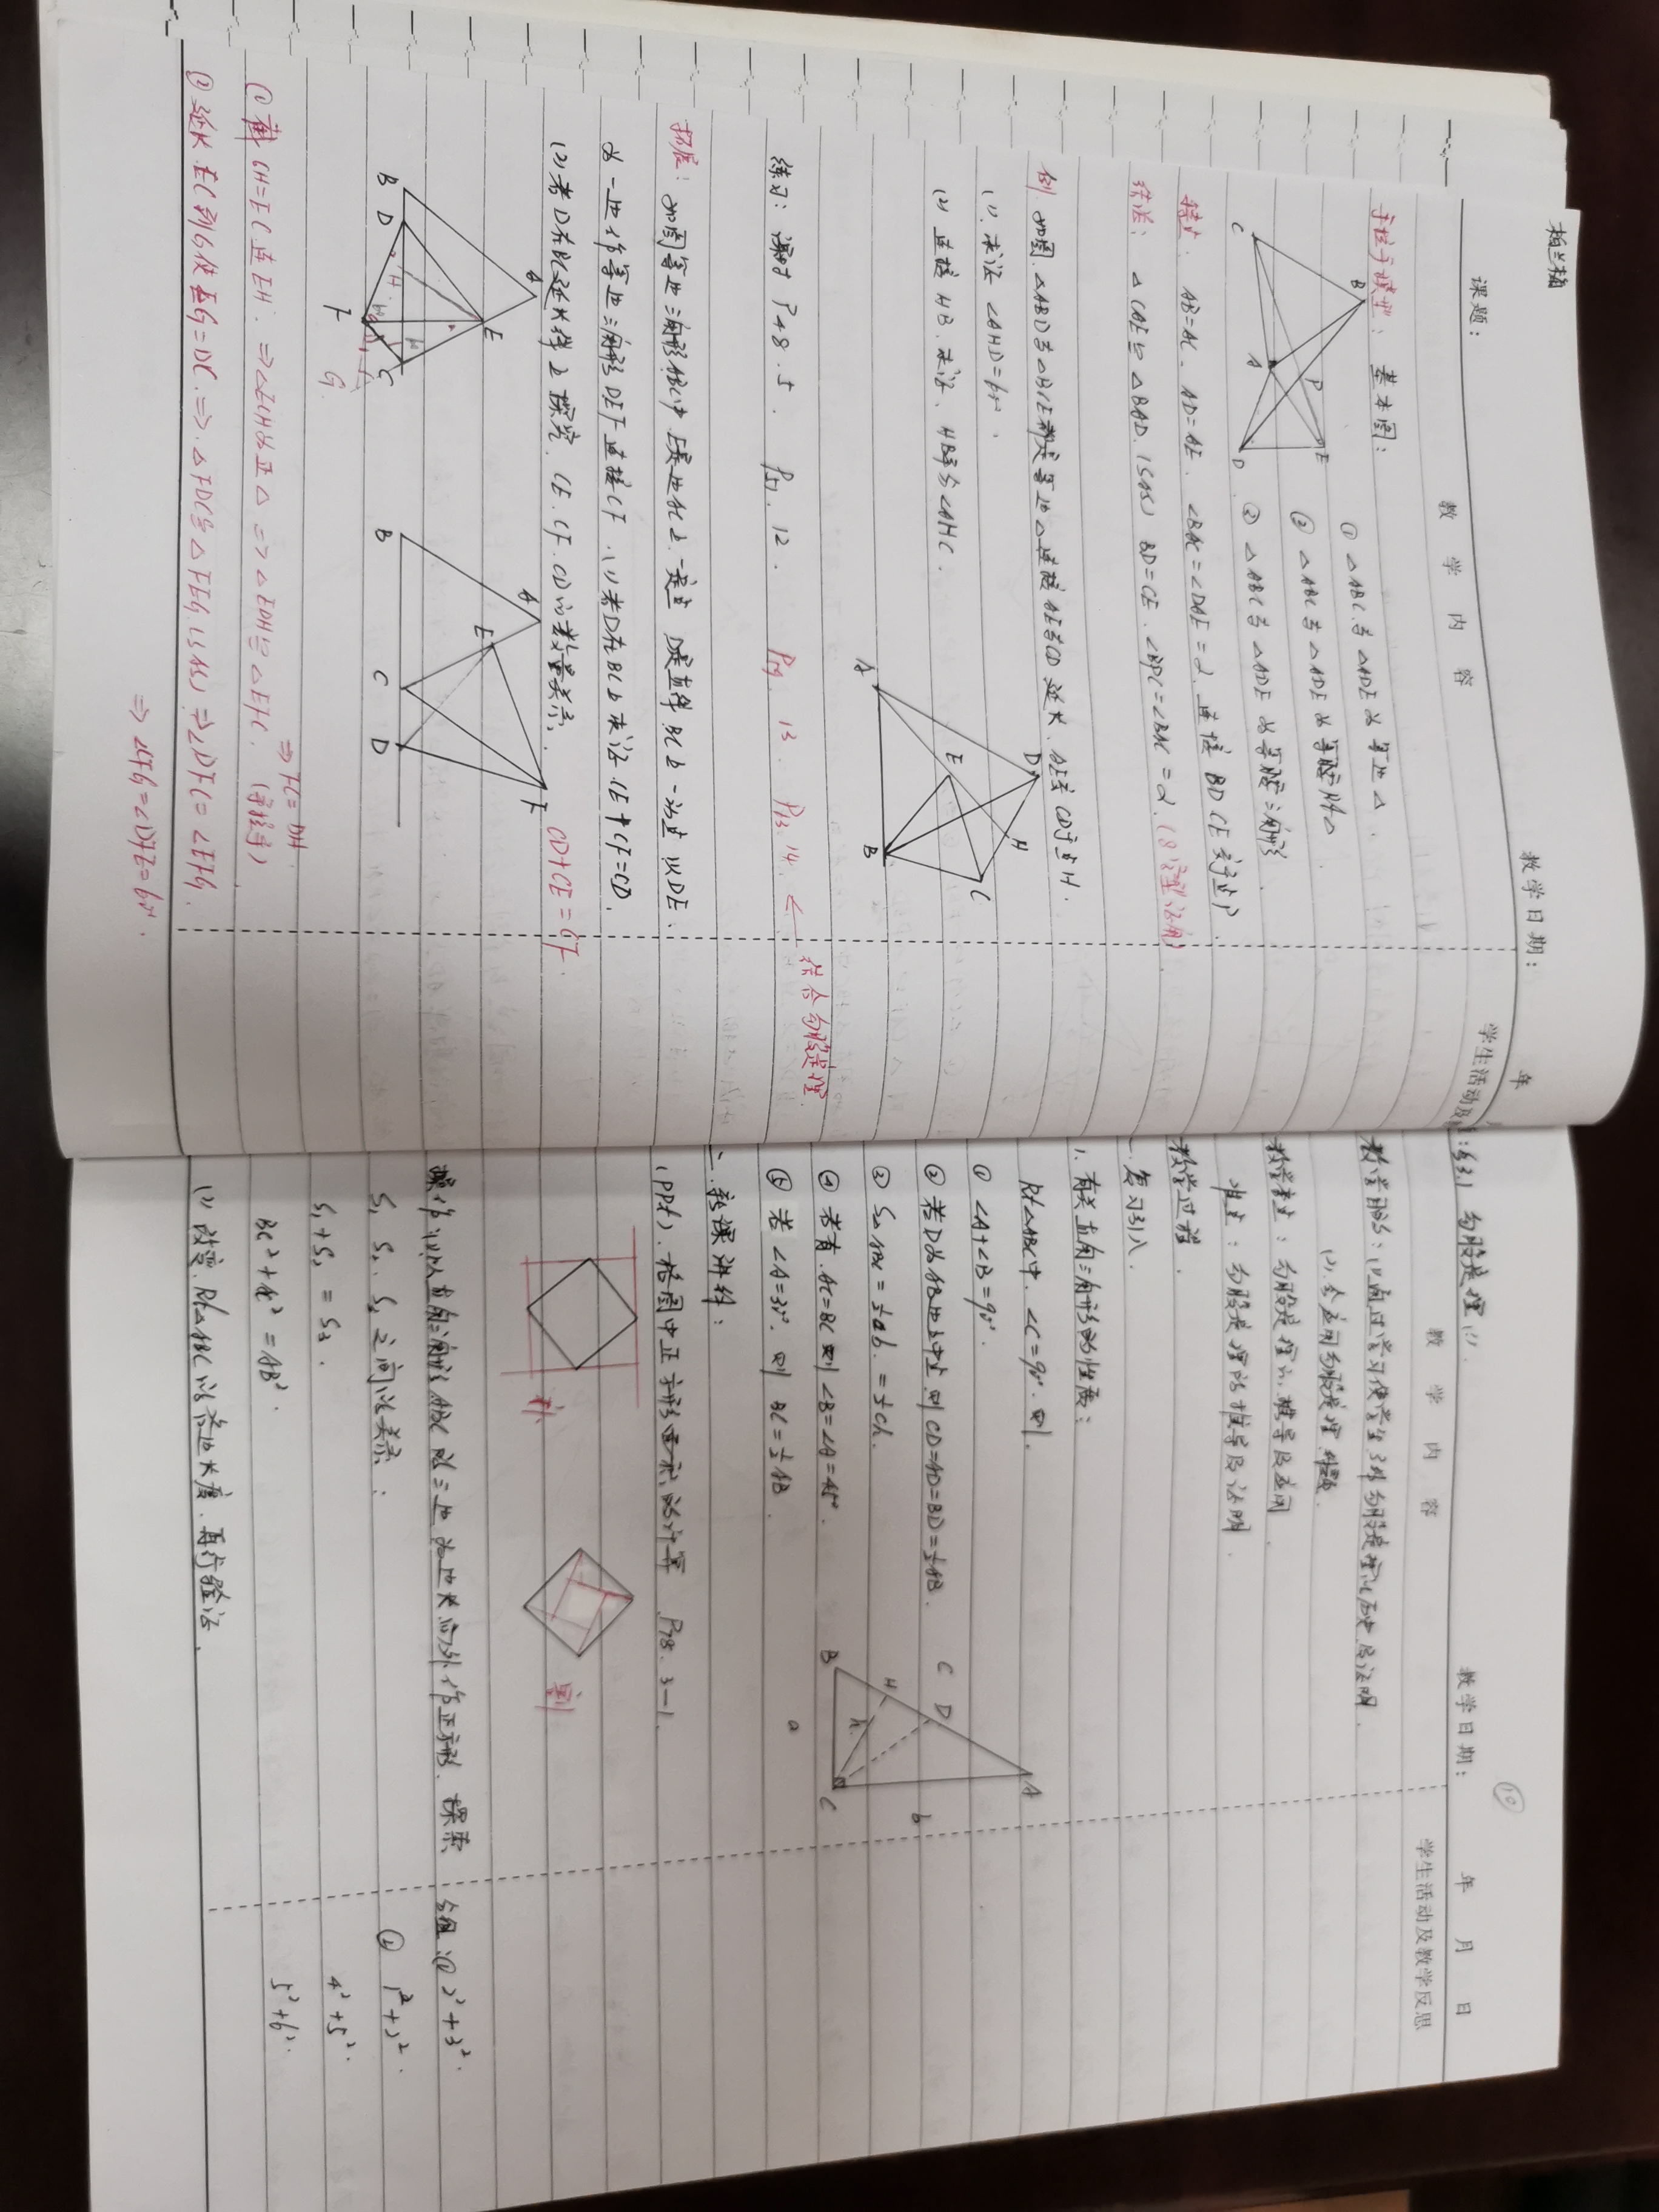 柏兰楠
教学日期： 年
课题：
教 学 内 容
学生活动及
手拉手模型：基本图：
① △ABC与△ADE为等边△.
② △ABC与△ADE为等腰Rt△
③ △ABC与△ADE为等腰三角形
B
C
A
P
E
D
特点：AB=AC、AD=AE、∠BAC=∠DAE=α 连接BD CE交于点P.
结论：△CAE≌△BAD.(SAS) BD=CE、∠BPC=∠BAC=α.(8字型证角)
例.如图.△ABD与△BCE都是等边△连接AE与CD延长.AE交CD于点H.
(1).求证∠AHD=60°.
(2)连接HB.求证、HB平分∠AHC.
A
D
E
H
B
C
练习：课时P48.5. P51.12. 13. 14. ←结合勾股定理
拓展：如图等边三角形ABC中E是边AC上一定点 D是直线BC上一动点 以DE
为一边作等边三角形DEF连接CF.(1)若D在BC上求证.CE+CF=CD.
(2)若D在BC延长线上探究.CE.CF.CD的数量关系. CD+CE=CF.
A
B
D
E
H
F
C
G
A
B
E
C
D
F
(1)截CH=EC连EH.⇒△ECH为正△⇒△EDH≌△EFC.(手拉手)
⇒FC=DH
②延长EC到G使EG=DC.⇒.△FDC≌△FEG.(SAS)⇒∠DFC=∠EFG.
⇒∠CFG=∠DFE=60°.
10
教学日期： 年 月 日
§3.1 勾股定理(1).
教 学 内 容
学生活动及教学反思
教学目标：(1)通过学习使学生了解勾股定理的历史及证明.
(2).会应用勾股定理解题.
教学重点：勾股定理的推导及应用
难点：勾股定理的推导及证明.
教学过程.
一.复习引入.
1.有关直角三角形的性质：
Rt△ABC中.∠C=90°.则.
① ∠A+∠B=90°.
② 若D为AB边上中点.则CD=AD=BD=½AB.
③ S△ABC=½ab.=½ch.
④ 若有.AC=BC则∠B=∠A=45°.
⑤ 若∠A=30°.则BC=½AB.
A
B
C
H
D
C
h
a
b
二.新课讲授：
(PPt).格图中正方形面积的计算 P78.3-1.
补.
割
操作:(1)以直角三角形ABC的三边为边长向外作正方形.探索
S₁ S₂.S₃之间的关系：
S₁+S₂=S₃.
BC²+AC²=AB².
(2)改变.Rt△ABC的各边长度.再行验证.
分组:① 2²+3².
② 1²+2².
4²+5².
5²+6².